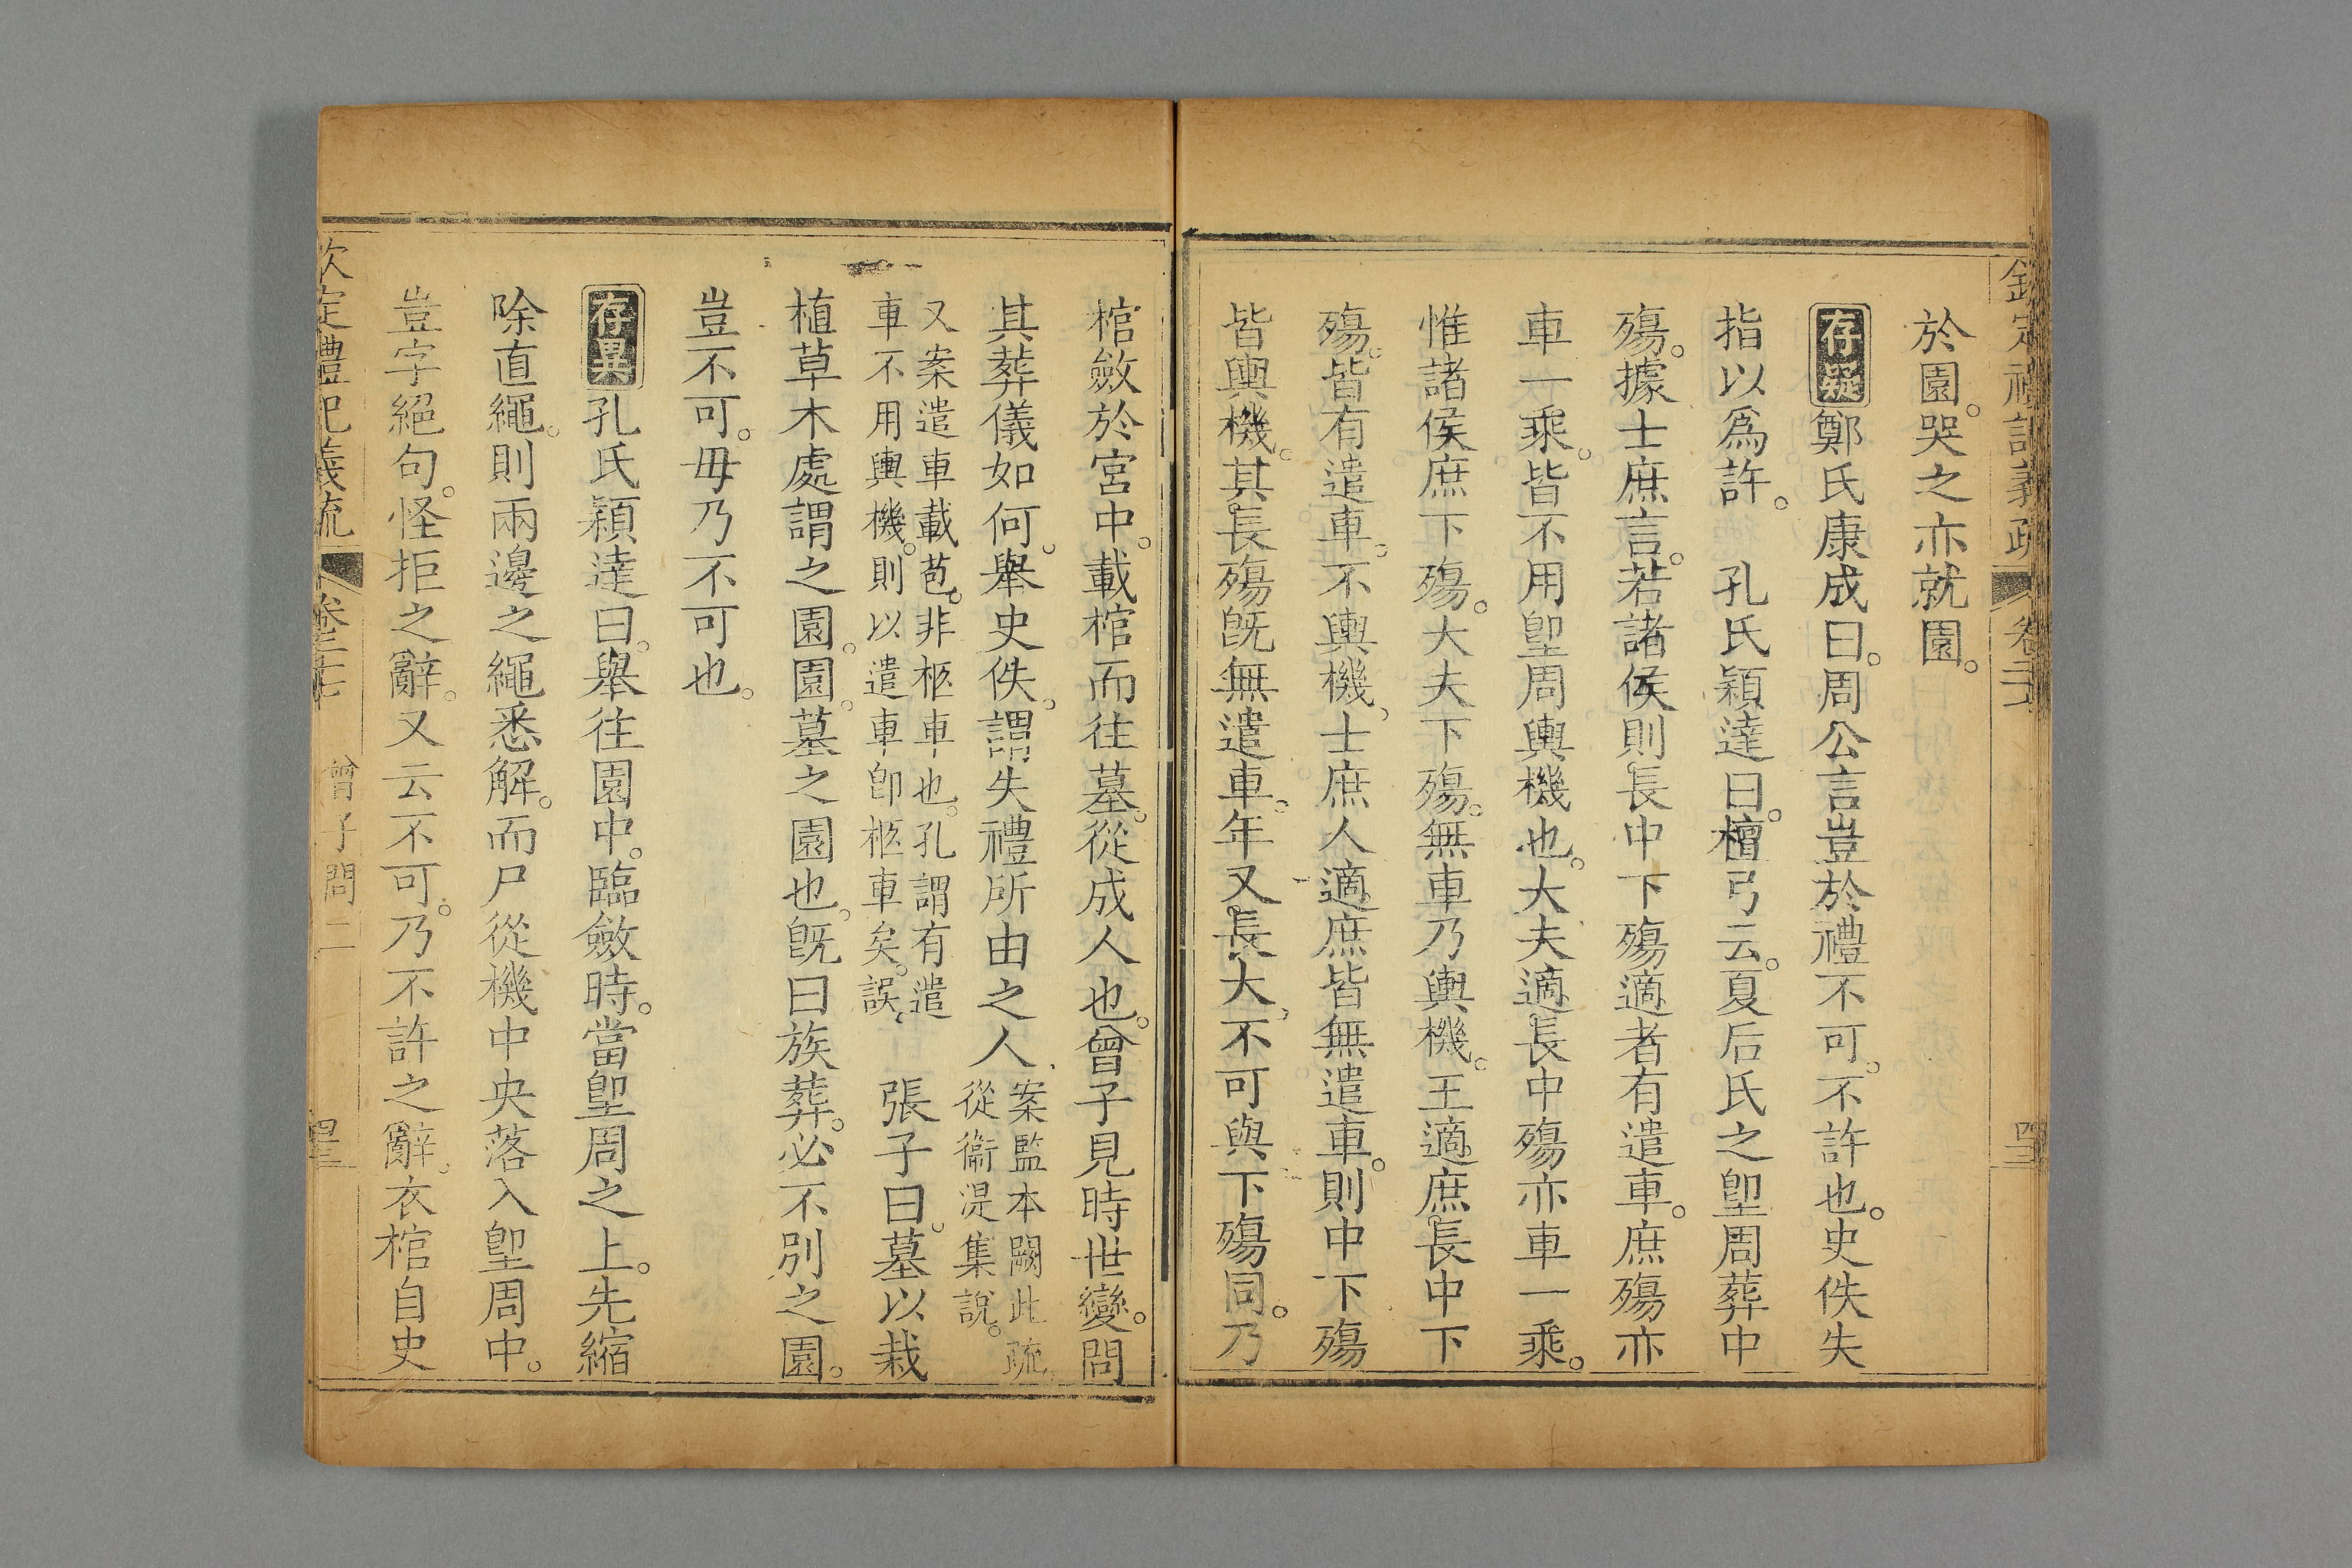 欽定禮記義疏 卷二十七 四二
於園。哭之亦就園。
存疑 鄭氏康成曰。周公言豈於禮不可。不許也。史佚失
指以爲許。 孔氏穎達曰。檀弓云。夏后氏之堲周葬中
殤。據士庶言。若諸侯則長中下殤適者有遣車。庶殤亦
車一乘。皆不用堲周輿機也。大夫適長中殤亦車一乘。
惟諸侯庶下殤。大夫下殤。無車乃輿機。王適庶長中下
殤。皆有遣車。不輿機。士庶人適庶皆無遣車。則中下殤
皆輿機。其長殤旣無遣車。年又長大。不可與下殤同。乃
棺斂於宮中。載棺而往墓。從成人也。曾子見時世變。問
其葬儀如何。舉史佚。謂失禮所由之人 案監本闕此疏
從衞湜集說。
又案遣車載苞。非柩車也。孔謂有遣
車不用輿機。則以遣車卽柩車矣。誤。 張子曰。墓以栽
植草木處謂之園。園。墓之園也。旣曰族葬。必不別之園。
豈不可。毋乃不可也。
存異 孔氏穎達曰。舉往園中。臨斂時。當堲周之上。先縮
除直繩。則兩邊之繩悉解。而尸從機中央落入堲周中。
豈字絕句。怪拒之辭。又云不可。乃不許之辭。衣棺自史
欽定禮記義疏 卷二十七 曾子問二